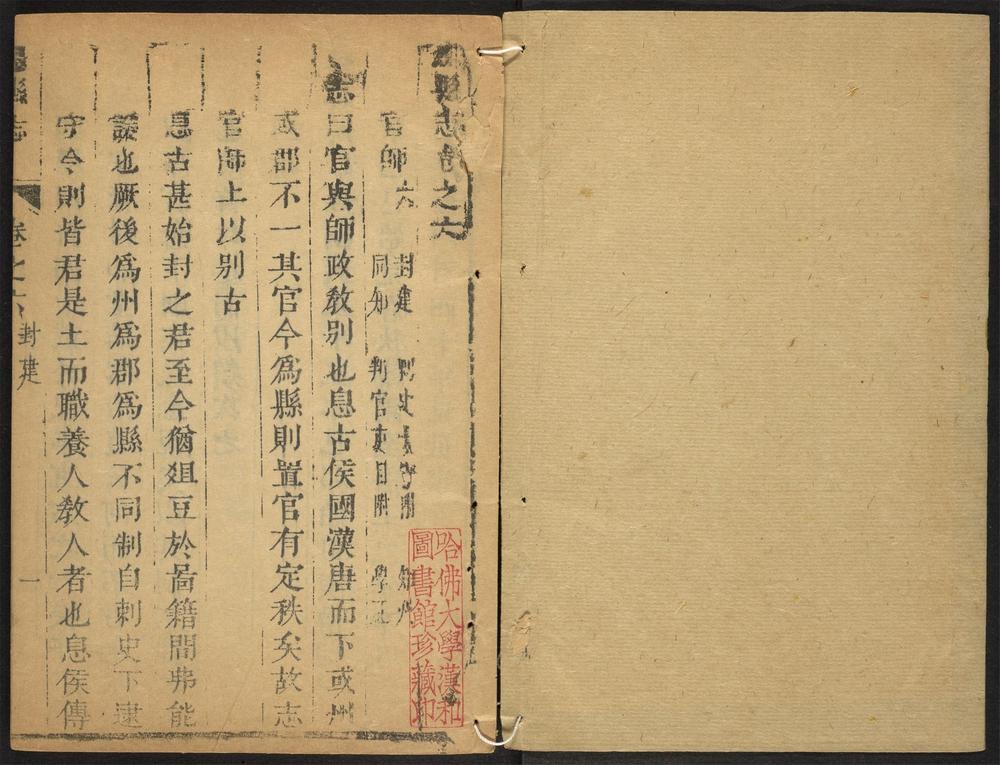 息縣志卷之六
官師六
封建 刺史太守附 知州
同知 判官吏目附 學正
志曰官與師政教别也息古侯國漢唐而下或州
或郡不一其官今爲縣則置官有定秩矣故志
官師上以别古
息古甚始封之君至今猶爼豆於啚籍間弗能
諼也厥後爲州爲郡爲縣不同制自刺史下逮
守令則皆君是土而職養人教人者也息侯傳
息縣志 卷之六 封建 一
哈佛大學漢和
圖書館珍藏印